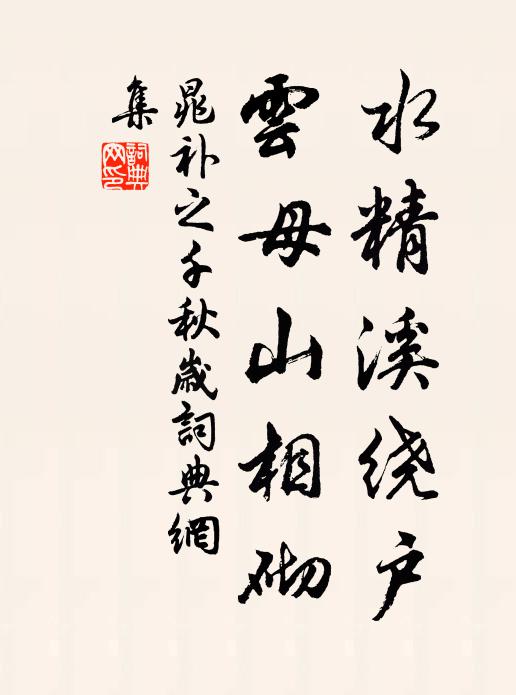 水精溪绕户
雲母山相砌
晁补之千秋嵗詞典網
集
詞典網印